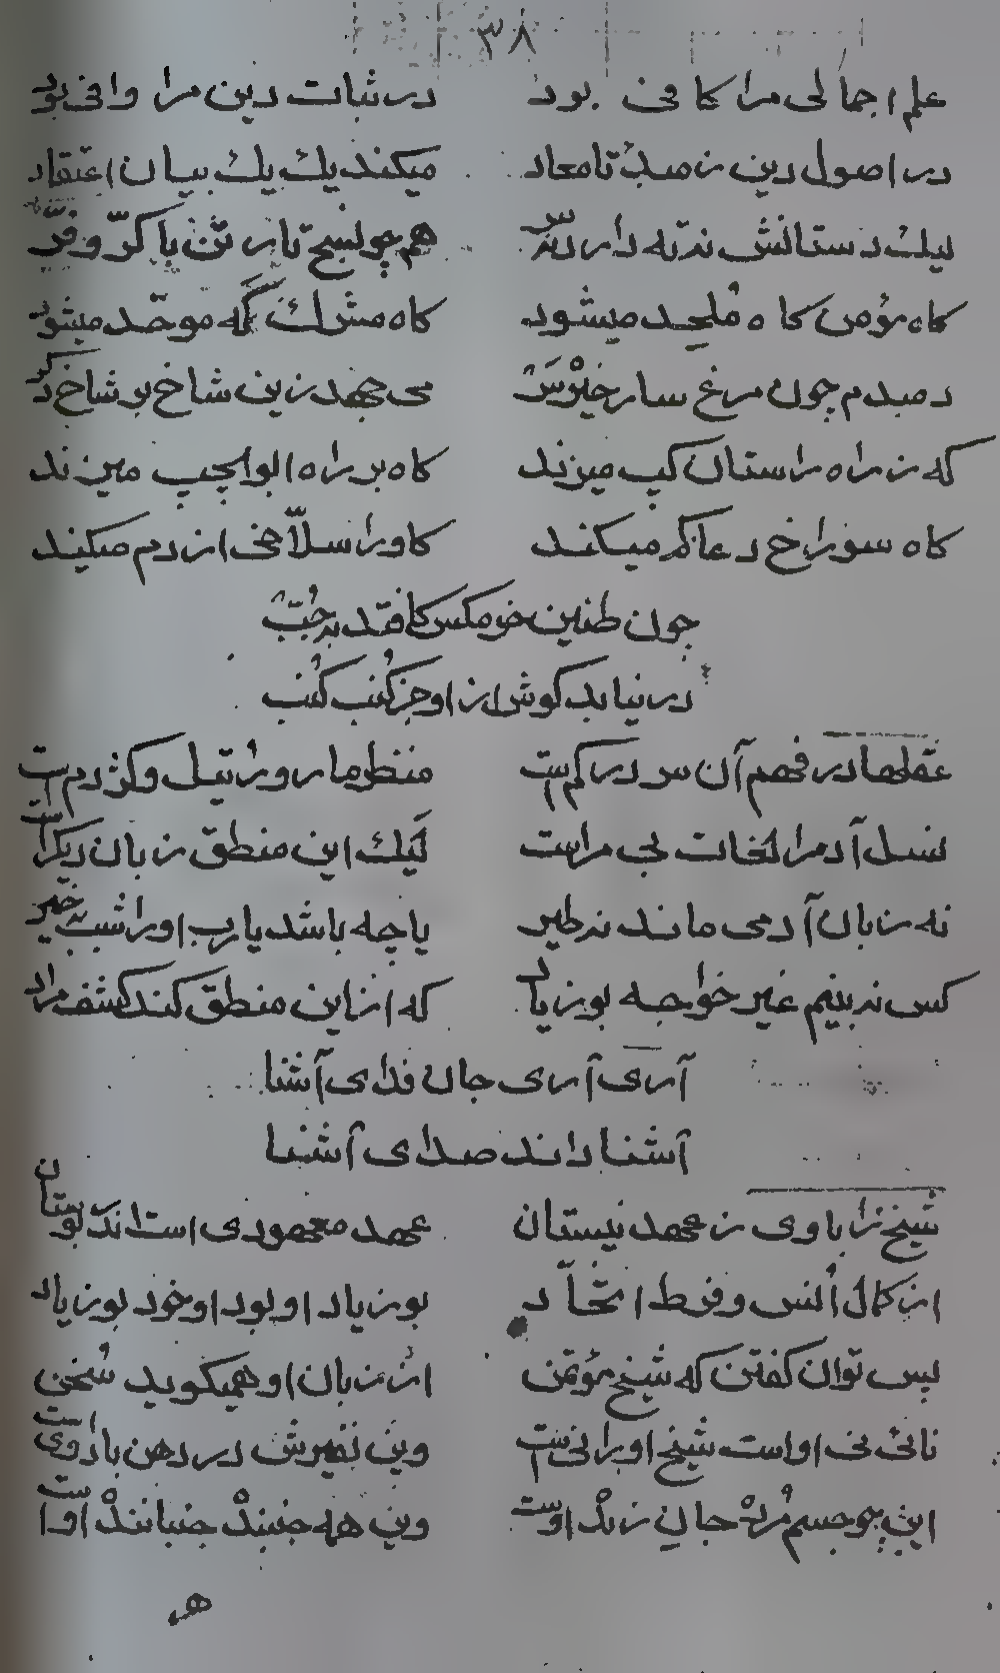 ۳۸
علم اجمالی مرا کافی بود در ثبات دین مرا وافی بود
در اصول دین ز مبدء تا معاد میکند یك یك بیان اعتقاد
لیك دستانش نه ته دارد نه سر هم چو نسج تار تن با کرّ و فرّ
کاه مؤمن کاه مُلحد میشود کاه مشرك گه موحّد میشود
دمبدم چون مرغ سار خیرْسَر می جهد زین شاخ بر شاخ دکر
که ز راه راستان کپ میزند کاه بر راه ابوالعجب میزند
کاه سوراخ دعا کم میکند کاو را سلّاخی از دم میکند
چون طنین خرمکس کافتد به خُنب
در نیابد کوش از او جز کُنب کُنب
عقلها در فهم آن سر در کم است منظر مار و رُتیل و کژدم است
نسل آدم را لغات بی مراست لَیك این منطق زبان دیکر است
نه زبان آدمی ماند نه طیر یا چه باشد یارب او را شبت خیر
کس نه بینم غیر خواجه بوزیاد که از این منطق کند کشف مراد
آری آری جان فدای آشنا
آشنا داند صدای آشنا
شیخ را با وی ز عهد نیستان عهد معهودی است اندَر بوستان
از کمال اُنس و فرط اتّحاد بوزیاد او بود او خود بوزیاد
پس توان کفتن که شیخ مؤتمن از زبان او همیکوید سُخن
نائی نی او است شیخ او را نی است وین نفیرش در دهن باد وی است
این چو جسم مُردْه جانِ زندْه اوست وین همه جنبندْه جنبانندْه اوست
هر